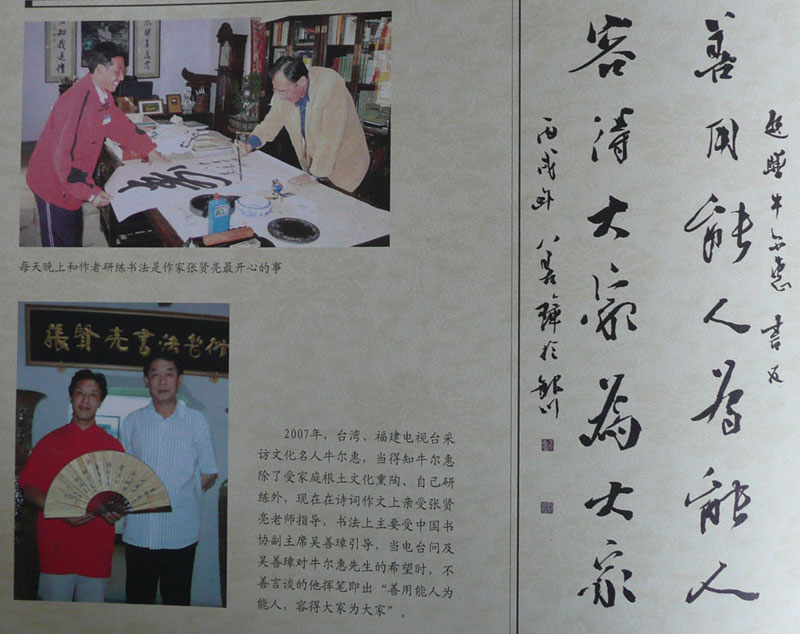 每天晚上和作者研练书法是作家张贤亮最开心的事
張賢亮書法藝術
2007年，台湾、福建电视台采
访文化名人牛尔惠，当得知牛尔惠
除了受家庭根土文化熏陶、自己研
练外，现在在诗词作文上亲受张贤
亮老师指导，书法上主要受中国书
协副主席吴善璋引导，当电台问及
吴善璋对牛尔惠先生的希望时，不
善言谈的他挥笔即出“善用能人为
能人，容得大家为大家”.
善用能人為能人
容得大家為大家
丙戌年 八善璋於銀川